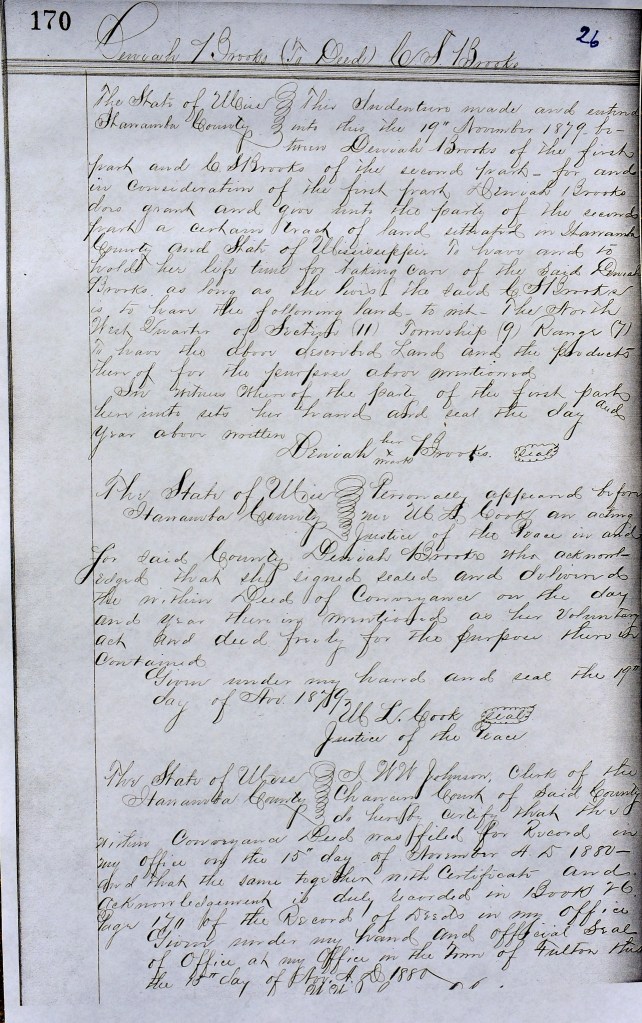 170
26
Deniah Brooks (To Deed) C S Brooks
The State of Miss This Indenture made and entered
Itawamba County into this the 19th November 1879 be-
tween Deniah Brooks of the first
part and C S Brooks of the second part - for and
in consideration of the first part Deniah Brooks
does grant and give unto the party of the second
part a certain tract of land situated in Itawamba
County and State of Mississippi. To have and to
hold her life time for taking care of the said Deniah
Brooks as long as she lives the said C S Brooks
is to have the following land - to wit - The North
West Quarter of Section (11) Township (9) Range (7)
To have the above described Land and the products
there of for the purpose above mentioned
In witness where of the party of the first part
here unto sets her hand and seal the day and
year above written
Deniah her x mark Brooks. seal
The State of Miss Personally appeared before
Itawamba County me M L Cook an acting
Justice of the Peace in and
for said County Deniah Brooks who acknowl
edged that she signed sealed and delivered
the within Deed of Conveyance on the day
and year therein mentioned as her voluntary
act and deed freely for the purpose there in
contained
Given under my hand and seal the 19th
day of Nov. 1879
M L. Cook seal
Justice of the Peace
The State of Miss I, W W Johnson, Clerk of the
Itawamba County Chancery Court of said County
do hereby certify that the
within Conveyance Deed was filed for Record in
my office on the 15th day of November A D 1880 -
and that the same together with Certificate and
acknowledgement is duly recorded in Book 26
Page 170 of the Record of Deeds in my office
Given under my hand and official Seal
of Office at my Office in the Town of Fulton this
the 15th day of Nov. A. D 1880